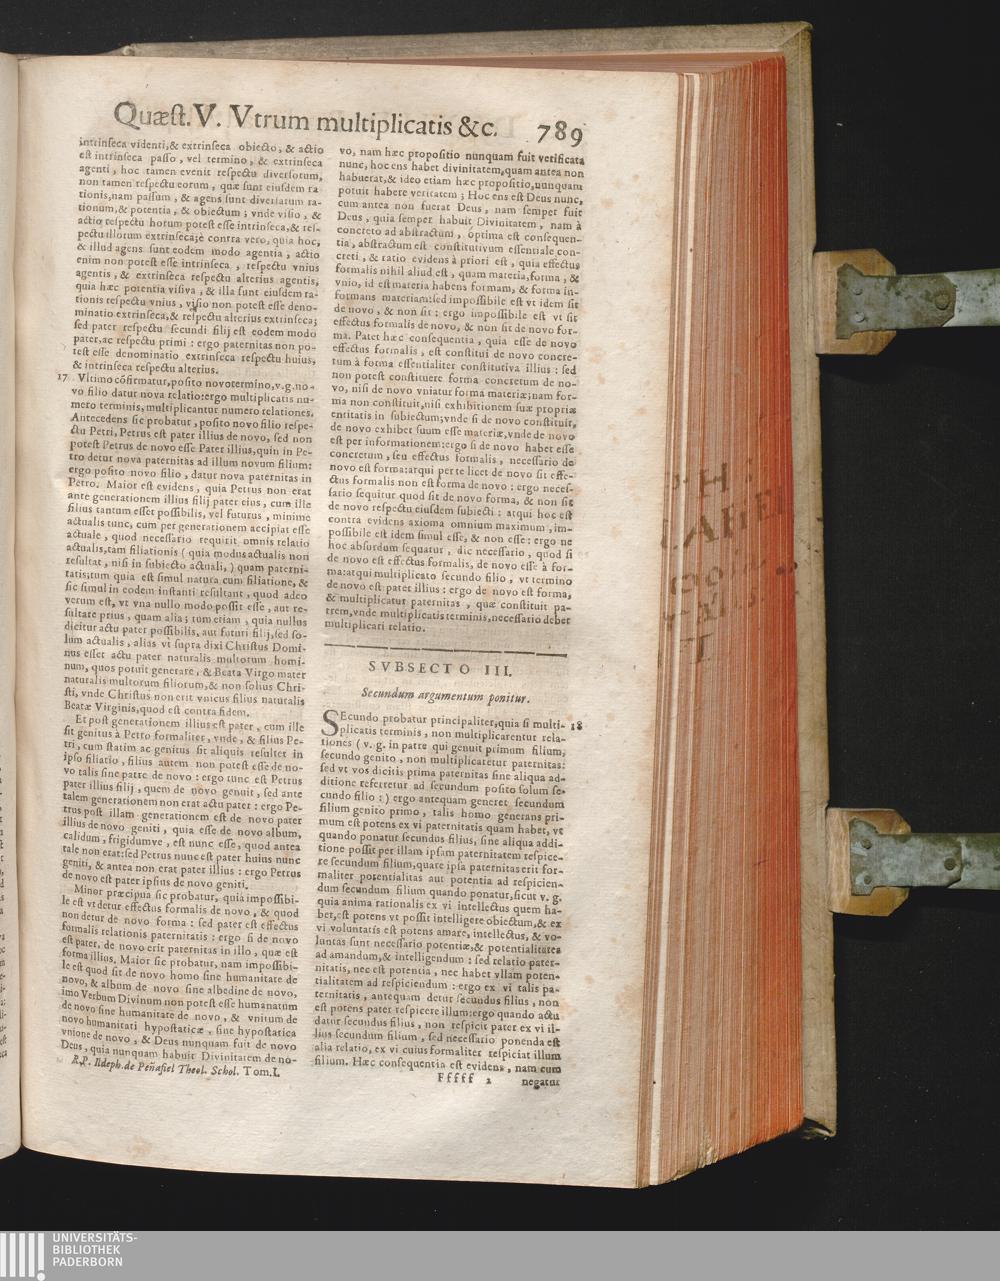 Quæſt. V. Vtrum multiplicatis &c. 789
intrinſeca videnti, & extrinſeca obiecto, & actio
eſt intrinſeca paſſo, vel termino, & extrinſeca
agenti, hoc tamen evenit reſpectu diverſorum,
non tamen reſpectu eorum, quæ ſunt eiuſdem ra-
tionis, nam paſſum, & agens ſunt diverſarum ra-
tionum, & potentia, & obiectum; vnde viſio, &
actio reſpectu horum poteſt eſſe intrinſeca, & reſ-
pectu illorum extrinſeca; è contra vero, quia hoc,
& illud agens ſunt eodem modo agentia, actio
enim non poteſt eſſe intrinſeca, reſpectu vnius
agentis, & extrinſeca reſpectu alterius agentis,
quia hæc potentia viſiva, & illa ſunt eiuſdem ra-
tionis reſpectu vnius, viſio non poteſt eſſe deno-
minatio extrinſeca, & reſpectu alterius extrinſeca;
ſed pater reſpectu ſecundi filij eſt eodem modo
pater, ac reſpectu primi: ergo paternitas non po-
teſt eſſe denominatio extrinſeca reſpectu huius,
& intrinſeca reſpectu alterius.
17 Vltimo cõfirmatur, poſito novo termino, v. g. no-
vo filio datur nova relatio: ergo multiplicatis nu-
mero terminis, multiplicantur numero relationes.
Antecedens ſic probatur, poſito novo filio reſpe-
ctu Petri, Petrus eſt pater illius de novo, ſed non
poteſt Petrus de novo eſſe Pater illius, quin in Pe-
tro detur nova paternitas ad illum novum filium:
ergo poſito novo filio, datur nova paternitas in
Petro. Maior eſt evidens, quia Petrus non erat
ante generationem illius filij pater eius, cum ille
filius tantum eſſet poſſibilis, vel futurus, minime
actualis tunc, cum per generationem accipiat eſſe
actuale, quod neceſſario requirit omnis relatio
actualis, tam filiationis (quia modus actualis non
reſultat, niſi in ſubiecto actuali,) quam paterni-
tatis; tum quia eſt ſimul natura cum filiatione, &
ſic ſimul in eodem inſtanti reſultant, quod adeo
verum eſt, vt vna nullo modo poſſit eſſe, aut re-
ſultare prius, quam alia; tum etiam, quia nullus
dicitur actu pater poſſibilis, aut futuri filij, ſed ſo-
lum actualis, alias vt ſupra dixi Chriſtus Domi-
nus eſſet actu pater naturalis multorum homi-
num, quos potuit generare, & Beata Virgo mater
naturalis multorum filiorum, & non ſolius Chri-
ſti, vnde Chriſtus non erit vnicus filius naturalis
Beatæ Virginis, quod eſt contra fidem.
Et poſt generationem illius eſt pater, cum ille
ſit genitus à Petro formaliter, vnde, & filius Pe-
tri, cum ſtatim ac genitus ſit aliquis reſultet in
ipſo filiatio, filius autem non poteſt eſſe de no-
vo talis ſine patre de novo: ergo tunc eſt Petrus
pater illius filij, quem de novo genuit, ſed ante
talem generationem non erat actu pater: ergo Pe-
trus poſt illam generationem eſt de novo pater
illius de novo geniti, quia eſſe de novo album,
calidum, frigidumve, eſt nunc eſſe, quod antea
tale non erat: ſed Petrus nunc eſt pater huius nunc
geniti, & antea non erat pater illius: ergo Petrus
de novo eſt pater ipſius de novo geniti.
Minor præcipua ſic probatur, quia impoſſibi-
le eſt vt detur effectus formalis de novo, & quod
non detur de novo forma: ſed pater eſt effectus
formalis relationis paternitatis: ergo ſi de novo
eſt pater, de novo erit paternitas in illo, quæ eſt
forma illius. Maior ſic probatur, nam impoſſibi-
le eſt quod ſit de novo homo ſine humanitate de
novo, & album de novo ſine albedine de novo,
imo Verbum Divinum non poteſt eſſe humanatum
de novo ſine humanitate de novo, & vnitum de
novo humanitati hypoſtaticæ, ſine hypoſtatica
vnione de novo, & Deus nunquam fuit de novo
Deus, quia nunquam habuit Divinitatem de no-
R.P. Ildeph. de Peñafiel Theol. Schol. Tom.I.
vo, nam hæc propoſitio nunquam fuit verificata
nunc, hoc ens habet divinitatem, quam antea non
habuerat, & ideo etiam hæc propoſitio, nunquam
potuit habere veritatem; Hoc ens eſt Deus nunc,
cum antea non fuerat Deus, nam ſemper fuit
Deus, quia ſemper habuit Divinitatem, nam à
concreto ad abſtractum, optima eſt conſequen-
tia, abſtractum eſt conſtitutivum eſſentiale con-
creti, & ratio evidens à priori eſt, quia effectus
formalis nihil aliud eſt, quam materia, forma, &
vnio, id eſt materia habens formam, & forma in-
formans materiam: ſed impoſſibile eſt vt idem ſit
de novo, & non ſit: ergo impoſſibile eſt vt ſit
effectus formalis de novo, & non ſit de novo for-
ma. Patet hæc conſequentia, quia eſſe de novo
effectus formalis, eſt conſtitui de novo concre-
tum à forma eſſentialiter conſtitutiva illius: ſed
non poteſt conſtituere forma concretum de no-
vo, niſi de novo vniatur forma materiæ; nam for-
ma non conſtituit, niſi exhibitionem ſuæ propriæ
entitatis in ſubiectum; vnde ſi de novo conſtituit,
de novo exhibet ſuum eſſe materiæ, vnde de novo
eſt per informationem: ergo ſi de novo habet eſſe
concretum, ſeu effectus formalis, neceſſario de
novo eſt forma: atqui per te licet de novo ſit effe-
ctus formalis non eſt forma de novo: ergo neceſ-
ſario ſequitur quod ſit de novo forma, & non ſit
de novo reſpectu eiuſdem ſubiecti: atqui hoc eſt
contra evidens axioma omnium maximum, im-
poſſibile eſt idem ſimul eſſe, & non eſſe: ergo ne
hoc abſurdum ſequatur, dic neceſſario, quod ſi
de novo eſt effectus formalis, de novo eſſe à for-
ma: atqui multiplicato ſecundo filio, vt termino
de novo eſt pater illius: ergo de novo eſt forma,
& multiplicatur paternitas, quæ conſtituit pa-
trem, vnde multiplicatis terminis, neceſſario debet
multiplicari relatio.
SVBSECTO III.
Secundum argumentum ponitur.
SEcundo probatur principaliter, quia ſi multi- 18
plicatis terminis, non multiplicarentur rela-
tiones (v. g. in patre qui genuit primum filium,
ſecundo genito, non multiplicaretur paternitas:
ſed vt vos dicitis prima paternitas ſine aliqua ad-
ditione referretur ad ſecundum poſito ſolum ſe-
cundo filio:) ergo antequam generet ſecundum
filium genito primo, talis homo generans pri-
mum eſt potens ex vi paternitatis quam habet, vt
quando ponatur ſecundus filius, ſine aliqua addi-
tione poſſit per illam ipſam paternitatem reſpice-
re ſecundum filium, quare ipſa paternitas erit for-
maliter potentialitas aut potentia ad reſpicien-
dum ſecundum filium quando ponatur, ſicut v. g.
quia anima rationalis ex vi intellectus quem ha-
bet, eſt potens vt poſſit intelligere obiectum, & ex
vi voluntatis eſt potens amare, intellectus, & vo-
luntas ſunt neceſſario potentiæ, & potentialitates
ad amandum, & intelligendum: ſed relatio pater-
nitatis, nec eſt potentia, nec habet vllam poten-
tialitatem ad reſpiciendum: ergo ex vi talis pa-
ternitatis, antequam detur ſecundus filius, non
eſt potens pater reſpicere illum: ergo quando actu
datur ſecundus filius, non reſpicit pater ex vi il-
lius ſecundum filium, ſed neceſſario ponenda eſt
alia relatio, ex vi cuius formaliter reſpiciat illum
filium. Hæc conſequentia eſt evidens, nam cum
Fffff 2 negatur
UNIVERSITÄTS-
BIBLIOTHEK
PADERBORN